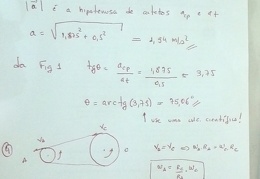 |a⃗| é a hipotenusa de catetos a_cp e a_t
a = √(1,875² + 0,5²) = 1,94 m/s²
da Fig 1 tgθ = a_cp/a_t = 1,875/0,5 = 3,75
θ = arctg(3,75) = 75,06°
↑ use uma calc. científica!
V_B V_C
V_B = V_C ⇒ ω_B R_B = ω_C R_C
A B C
ω_B = R_C/R_B ω_C